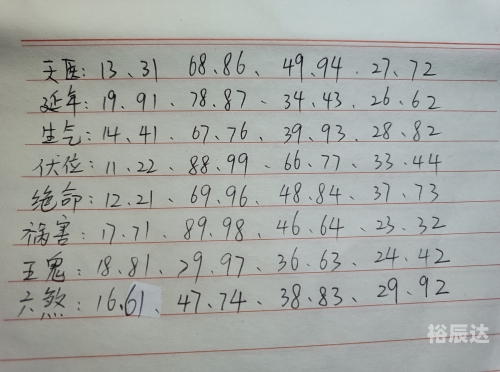 天医：13、31 68.86、49.94、27、72
延年：19.91、78.87、34.43、26.62
生气：14.41、67.76、39.93、28.82
伏位：11.22、88.99、66.77、33.44
绝命：12.21、69.96、48.84、37.73
祸害：17.71、89.98、46.64、23.32
王鬼：18.81、79.97、36.63、24.42
六煞：16.61、47.74、38.83、29.92
裕辰达